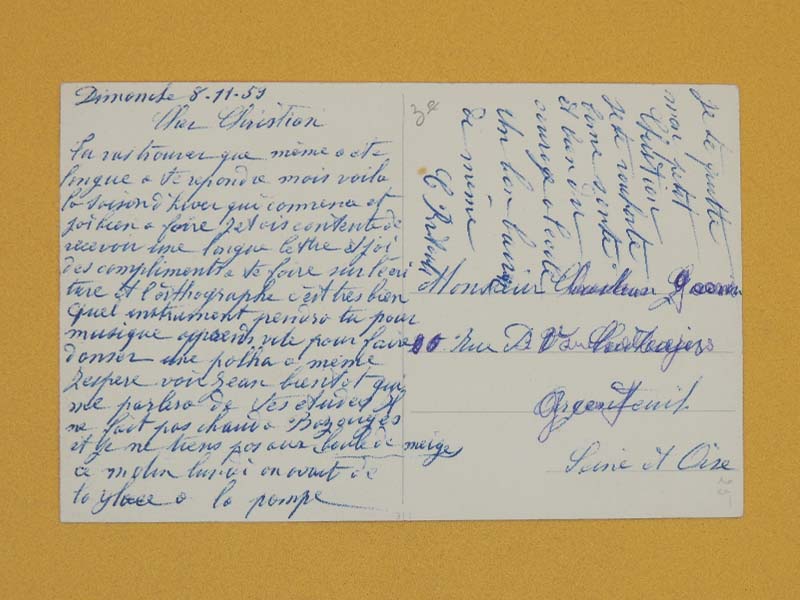 Dimanche 8-11-59
Cher Christian
Tu vas trouver que mémé a été
longue a te repondre mais voila
la saison d hiver qui commence et
joi bien a faire Jetais contente de
recevoir une longue lettre et jai
des compliments a te faire sur l'écri
ture et l'orthographe c'est tres bien
Quel instrument pendra tu pour
musique apprends vite pour faire
danser une polka a mémé
Jespere voir Jean bientot qui
me parlera de tes etudes Il
ne fait pas chaud a
et je ne tiens pas aux boule de neige
ce matin lundi on avait de
la glace a la pompe
3e
Je te quitte
mon petit
Christian
Je te souhaite
bonne santé
et bon
courage a l'ecole
Un bon baiser
de mémé
Monsieur
10 Rue D
Argenteuil
Seine et Oise